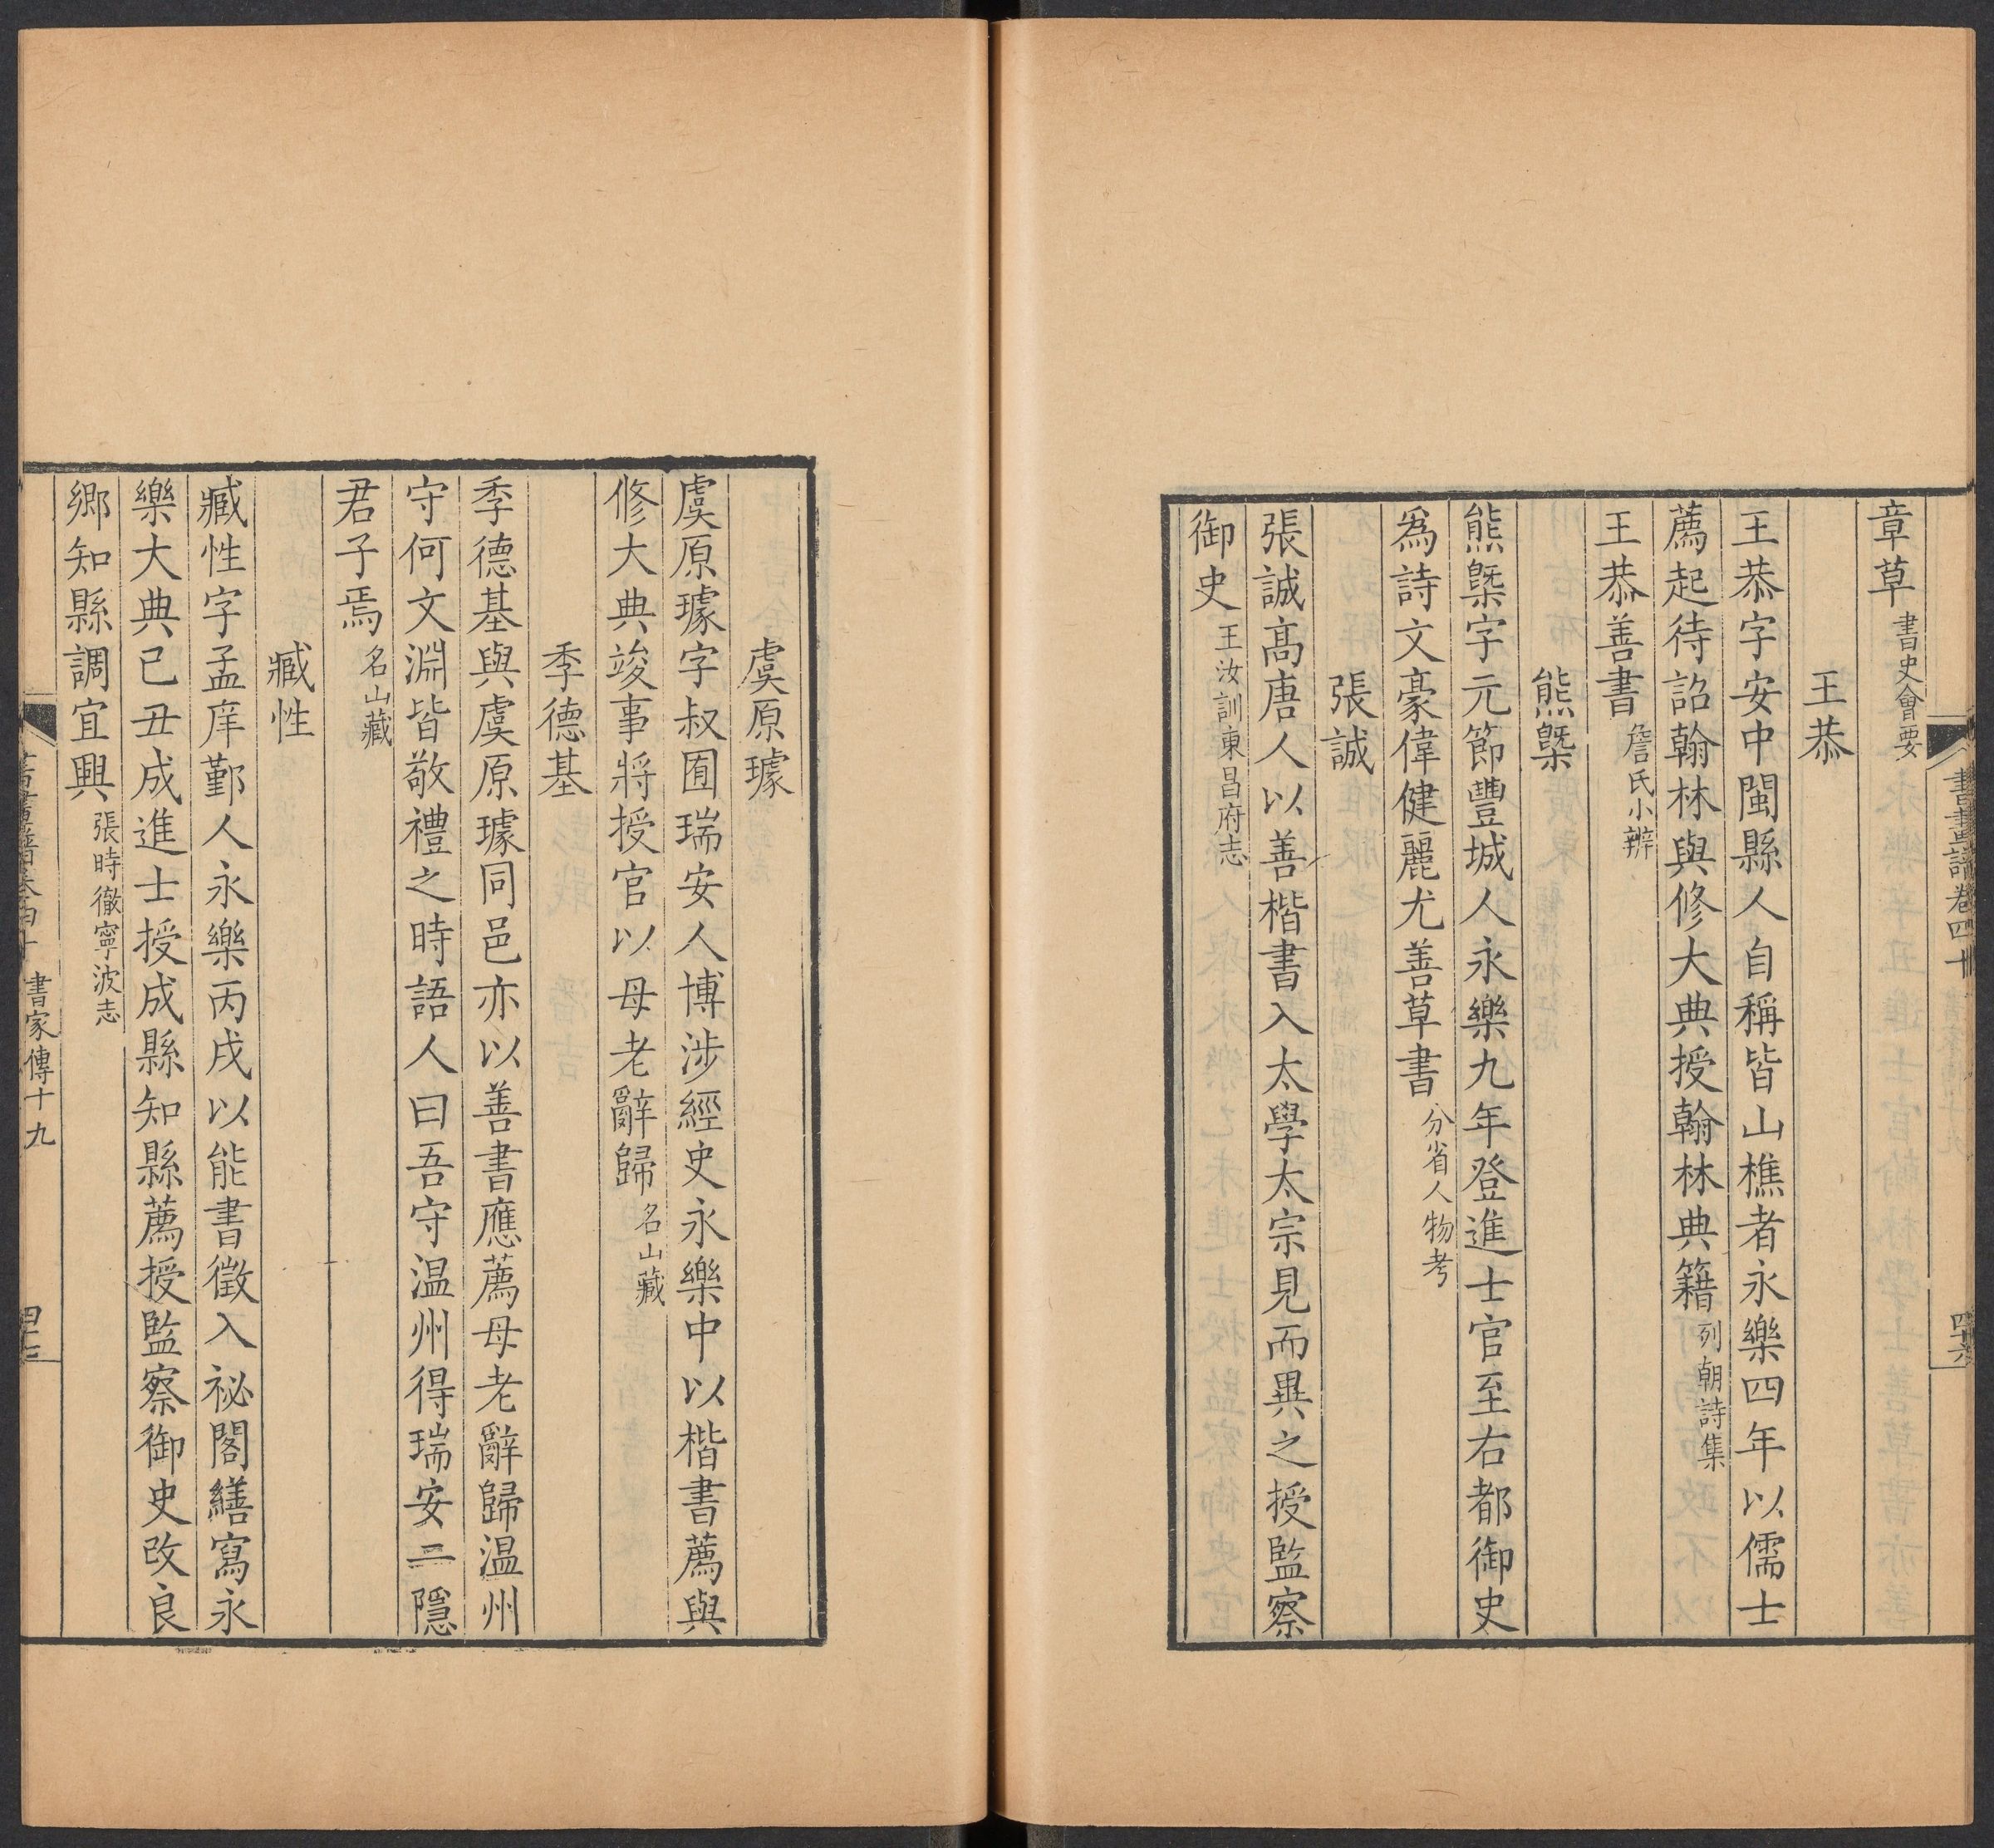 書畫譜卷四十
章草書史會要
王恭
王恭字安中閩縣人自稱皆山樵者永樂四年以儒士
薦起待詔翰林與修大典授翰林典籍列朝詩集
王恭善書詹氏小辨
熊槩
熊槩字元節豐城人永樂九年登進士官至右都御史
爲詩文豪偉健麗尤善草書分省人物考
張誠
張誠高唐人以善楷書入太學太宗見而異之授監察
御史王汝訓東昌府志
虞原璩
虞原璩字叔囿瑞安人博涉經史永樂中以楷書薦與
修大典竣事將授官以母老辭歸名山藏
季德基
季德基與虞原璩同邑亦以善書應薦母老辭歸温州
守何文淵皆敬禮之時語人曰吾守温州得瑞安二隱
君子焉名山藏
臧性
臧性字孟庠鄞人永樂丙戌以能書徵入祕閣繕寫永
樂大典己丑成進士授成縣知縣薦授監察御史改良
鄉知縣調宜興張時徹寧波志
書畫譜卷四十 書家傳十九